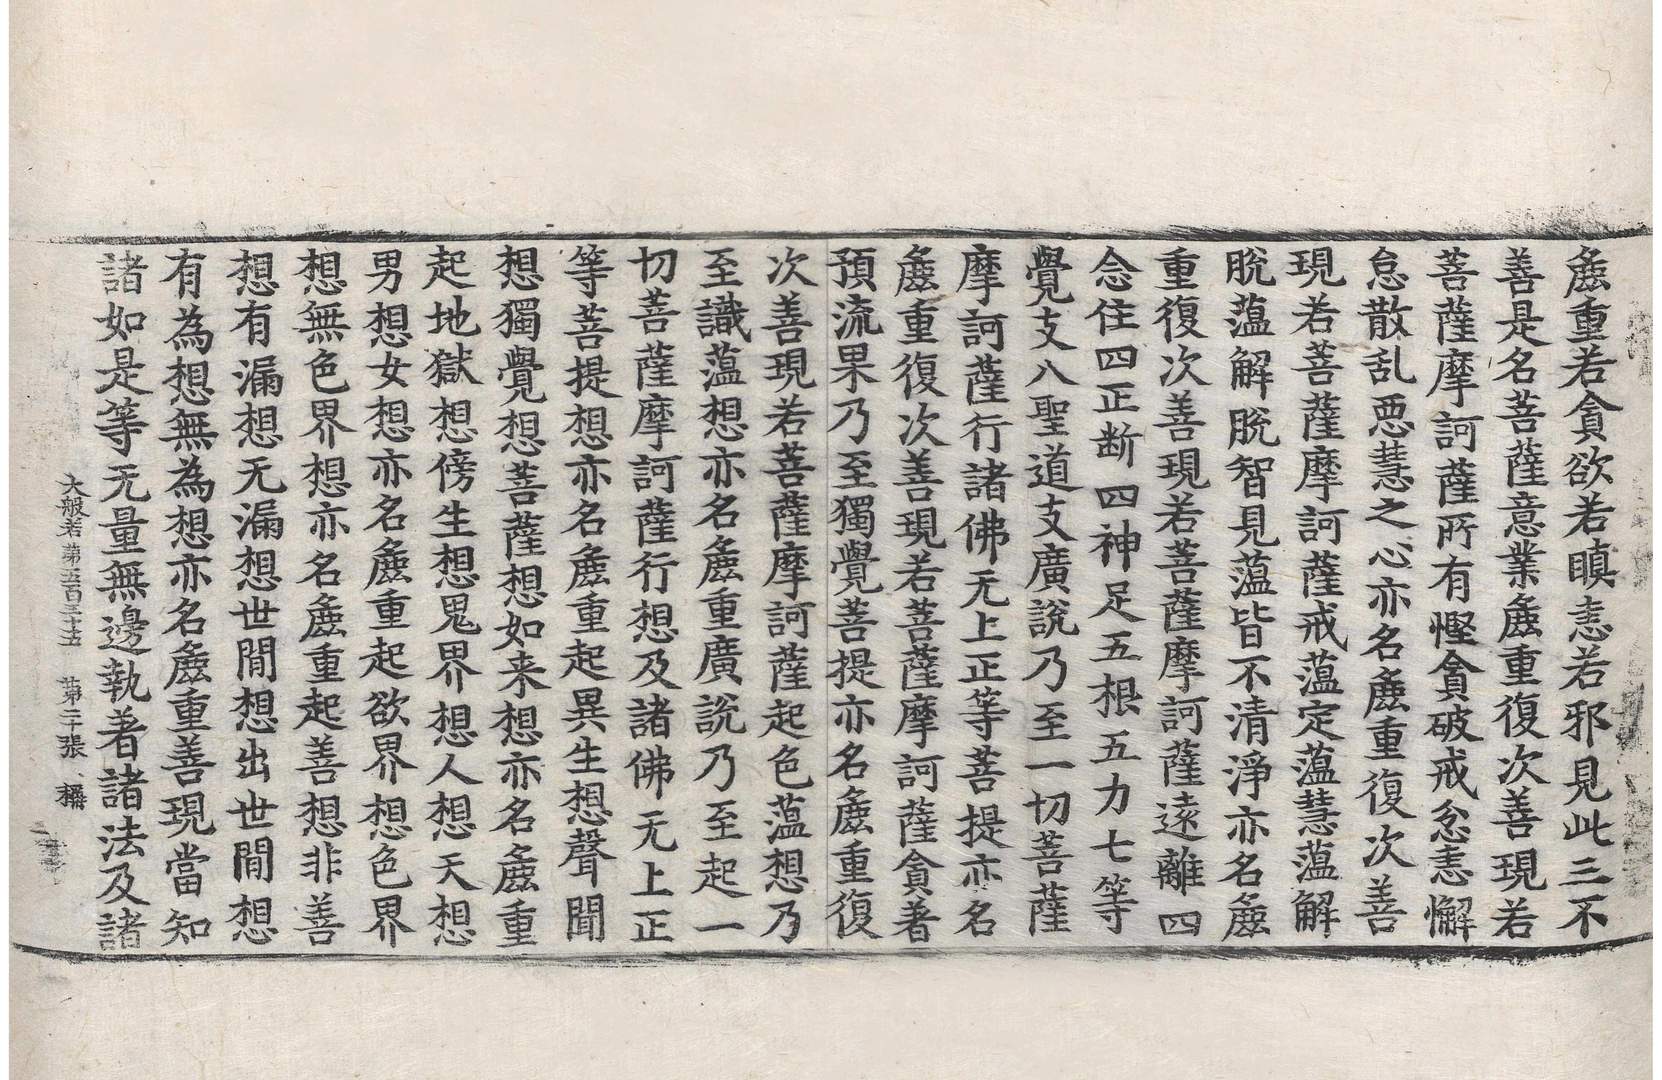 麁重若貪欲若瞋恚若邪見此三不
善是名菩薩意業麁重復次善現若
菩薩摩訶薩所有慳貪破戒忿恚懈
怠散乱悪慧之心亦名麁重復次善
現若菩薩摩訶薩戒蕰定蕰慧蕰解
脫蕰解脫智見蕰皆不清淨亦名麁
重復次善現若菩薩摩訶薩遠離四
念住四正断四神足五根五力七等
覺支八聖道支廣說乃至一切菩薩
摩訶薩行諸佛无上正等菩提亦名
麁重復次善現若菩薩摩訶薩貪著
預流果乃至獨覺菩提亦名麁重復
次善現若菩薩摩訶薩起色蕰想乃
至識蕰想亦名麁重廣說乃至起一
切菩薩摩訶薩行想及諸佛无上正
等菩提想亦名麁重起異生想聲聞
想獨覺想菩薩想如来想亦名麁重
起地獄想傍生想鬼界想人想天想
男想女想亦名麁重起欲界想色界
想無色界想亦名麁重起善想非善
想有漏想无漏想世間想出世間想
有為想無為想亦名麁重善現當知
諸如是等无量無邊執著諸法及諸
大般若第五百三十五 第二十張